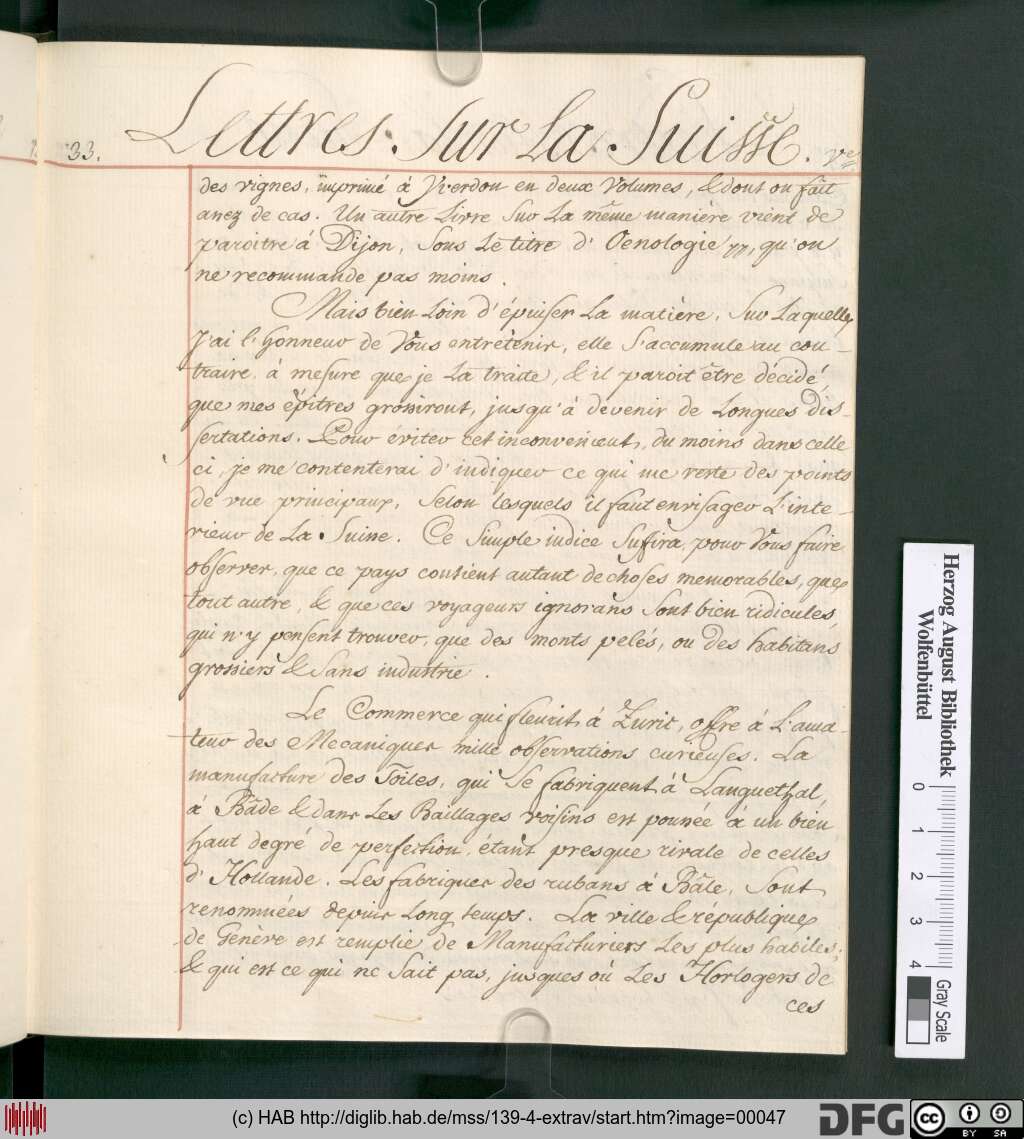 33.
Lettres. sur La Suisse.
des vignes, imprimé à Yverdon en deux Volumes, & dont on fait
assez de cas. Un autre Livre sur La même manière vient de
paroitre à Dijon, sous Le titre d'Oenologie, qu'on
ne recommande pas moins.
Mais bien Loin d'épuiser La matière, sur Laquelle
J'ai l'honneur de Vous entretenir, elle s'accumule au con-
traire, à mesure que je La traite, & il paroit être décidé,
que mes épitres grossiront, jusqu'à devenir de Longues dis-
sertations. Pour éviter cet inconvenient, du moins dans celle
ci, je me contenterai d'indiquer ce qui me reste des points
de vue principaux, selon lesquels il faut envisager L'inte-
rieur de La Suisse. Ce simple indice sufira, pour Vous faire
observer, que ce pays contient autant de choses memorables, que
tout autre, & que ces voyageurs ignorans sont bien ridicules,
qui n'y pensent trouver, que des monts pelés, ou des habitans
grossiers & sans industrie.
Le Commerce qui fleurit à Zuric, offre à L'ama-
teur des Mecaniques mille observations curieuses. La
manufacture des Toiles, qui se fabriquent à Languethal,
à Bâde & dans Les Baillages voisins est poussée à un bien
haut degré de perfection, étant presque rivale de celles
d'Hollande. Les fabriques des rubans à Bâle, sont
renommées depuis Long temps. La ville & république
de Genève est remplie de Manufacturiers Les plus habiles;
& qui est ce qui ne sait pas, jusques où Les Horlogers de
ces
Herzog August Bibliothek
Wolfenbüttel
0 1 2 3 4
Gray Scale
(c) HAB http://diglib.hab.de/mss/139-4-extrav/start.htm?image=00047
DFG
cc BY SA